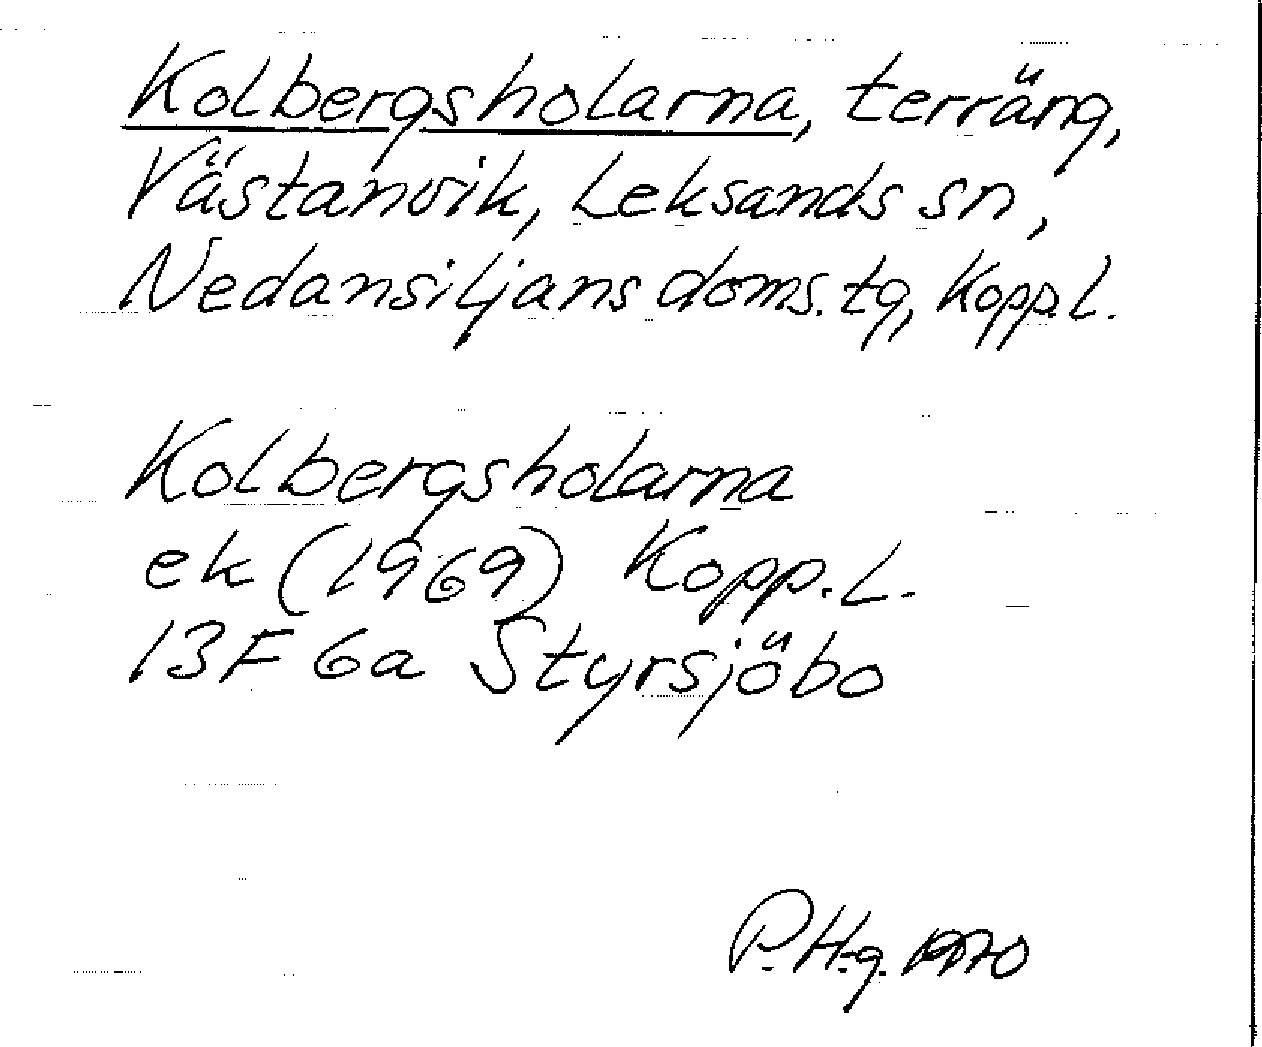 Kolbergsholarna, terräng,
Västanvik, Leksands sn,
Nedansiljans doms. tg, Kopp. l.
Kolbergsholarna
ek (1969) Kopp. L.
13F 6a Styrsjöbo
P. H-g. 1970